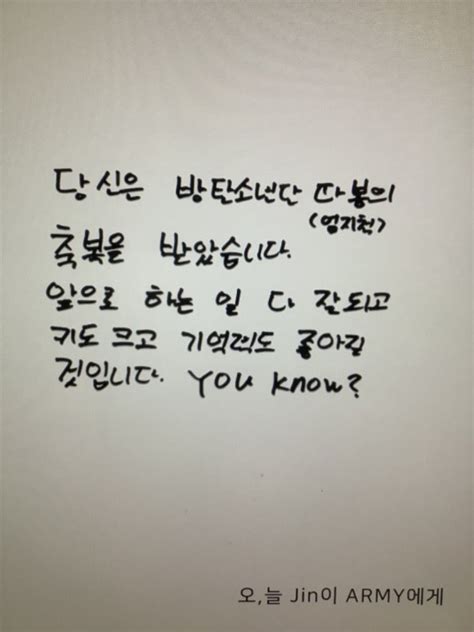 당신은 방탄소년단 따봉의
(엄지척)
축복을 받았습니다.
앞으로 하는 일 다 잘되고
키도 크고 기억력도 좋아질
것입니다. YOU KNOW?
오,늘 Jin이 ARMY에게